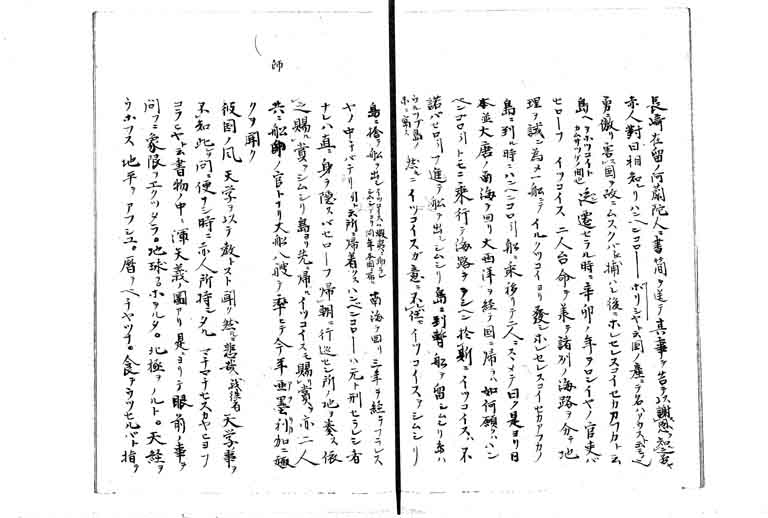 長崎在留ノ阿蘭陀人ニ書簡ヲ送テ其事ヲ告テ以謝恩
赤人對曰相知レリハンベンゴローボリシヤト云国ノ産ニテ名ハ
勇傲ニ害国ヲ攻ムスクバニ捕ハレ後ニホレセレスコイセカカフカト云
島ヘ 追遣セラル時ニ辛卯ノ年ヲロシイヤノ官吏バ
セローフ イツコイス 二人台命ヲ承テ諸列ノ海路ヲ分チ地
理ヲ試ン為メニ船ニテイルクツコイヨリ發シホレセレスコイセカアフカノ
島ニ到ル時ニハンベンゴロー引船ニ乘移リテ二人ニスヽメテ曰ク是ヨリ日
本並大唐ノ南海ヲ回リ大西洋ヲ経テ国ニ帰ラハ如何願クハハン
ベンゴロー引トモニ乘行テ海路ヲヲシヘン於斯ニイツコイスハ不
諾バセローフ進テ船ヲ出シシムシリ島ニ到暫ク船ヲ留シムシリ島ハ
ウルツプ島ノ 然ルニイツコイスガ意ニ不従ニイツコイスヲシムシリ
島ニ捨テ船ヲ出シ 南海ヲ回リ三年ヲ経テフランス
ヤノ中チバテリ引ト云所ニ帰着クハンベンゴローハ元ト刑セラレシ者
ナレハ直ニ身ヲ隠スバセローフ帰朝ニ行巡セシ所ノ地ヲ奏ス依
之賜レ賞ヲシムシリ島ヨリ先帰ルイツコイスモ賜レ賞ヲ亦二人
共ニ船師ノ官トナリ大船八艘ヲ率ヒテ今年亜墨利加ニ趣
クヲ聞ク
彼国ノ風天学ヲ以テ教トスト聞ク然レ共悲哉我従者天学ノ事ヲ
不知此ヲ問ニ便ナシ時ニ赤人所持シタルマテマテセスカヤヒヨフ
コラニヤト云書物ノ中ニ渾天義ノ圖アリ是ニヨリテ眼前ノ事ヲ
問フニ象限ヲエクツタラ。地球ヲホヲルタ。北極ヲノルト。天経ヲ
ラホフス 地平ヲアフシユ。暦ヲベチヤツナイ。食ヲウツセルバト指ヲ
師